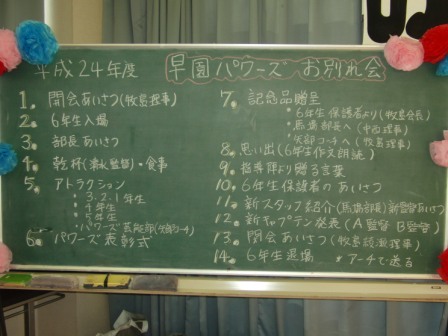 平成24年度 早園パワーズ お別れ会
1. 開会あいさつ(牧島理事)
2. 6年生入場
3. 部長あいさつ
4. 乾杯(清水監督)・食事
5. アトラクション
・3.2.1年生
・4年生
・5年生
・パワーズ芸能部(矢部コーチ)
6. パワーズ表彰式
7. 記念品贈呈
・6年生保護者より(牧島会長)
・馬場部長へ(中西理事)
・矢部コーチへ(牧島理事)
8. 思い出(6年生作文朗読)
9. 指導陣より贈る言葉
10. 6年生保護者のあいさつ
11. 新スタッフ紹介(馬場部長)新監督あいさつ
12. 新キャプテン発表(A監督 B監督)
13. 閉会あいさつ(牧島理事)
14. 6年生退場 *アーチで送る